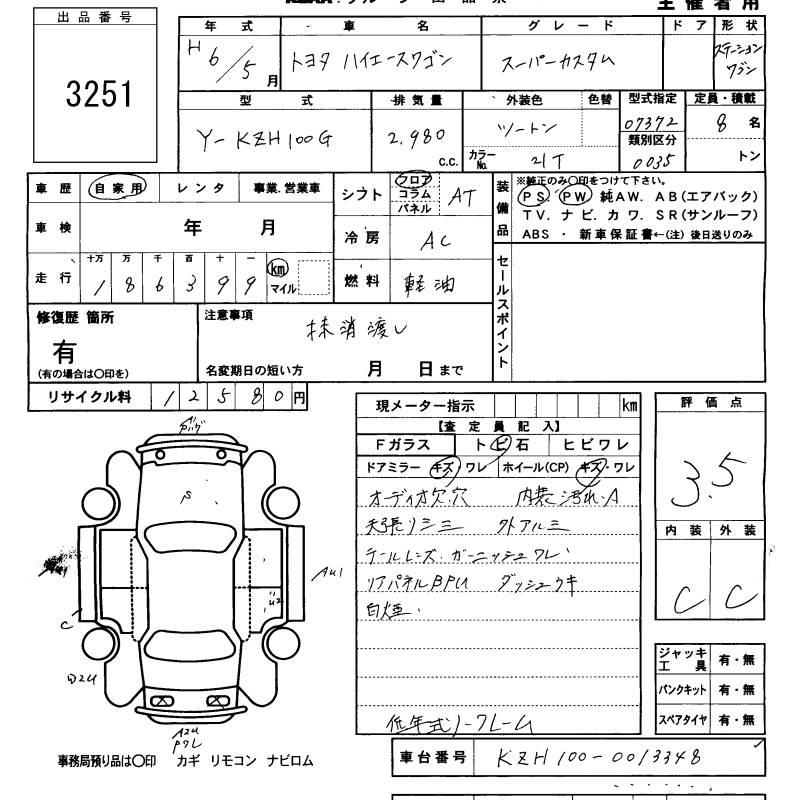 出品番号
3251
主催者用
年式 車名 グレード ドア 形状
H 6/5月 トヨタ ハイエースワゴン スーパーカスタム ステーションワゴン
型式 排気量 外装色 色替 型式指定 定員・積載
Y-KZH100G 2.980 c.c. ツートン 07372 8名
類別区分
カラーNo. 21T 0035 トン
車歴 自家用 レンタ 事業.営業車 シフト フロア コラム パネル AT
装備品 ※純正のみ〇印をつけて下さい。
PS PW 純AW. AB(エアバック)
TV. ナビ. カワ. SR(サンルーフ)
ABS ・ 新車保証書←(注)後日送りのみ
車検 年 月 冷房 AC
走行 十万 万 千 百 十 一
186399 km マイル 燃料 軽油
セールスポイント
修復歴 箇所 有 (有の場合は〇印を)
注意事項 抹消渡し
名変期日の短い方 月 日まで
リサイクル料 12580円
現メーター指示 km
【査定員記入】
Fガラス トビ石 ヒビワレ
ドアミラー キズ・ワレ ホイール(CP) キズ・ワレ
オーディオ欠.穴 内装汚れ.A
天張リシミ 外アルミ
テールレンズ.ガーニッシュワレ
リアパネルBPU ダッシュウキ
白煙.
低年式ノークレーム
評価点
3.5
内装 外装
C C
S
AU1
U2
C
A2U
Pワレ
ジャッキ工具 有・無
パンクキット 有・無
スペアタイヤ 有・無
事務局預り品は〇印 カギ リモコン ナビロム
車台番号 KZH100-0013348